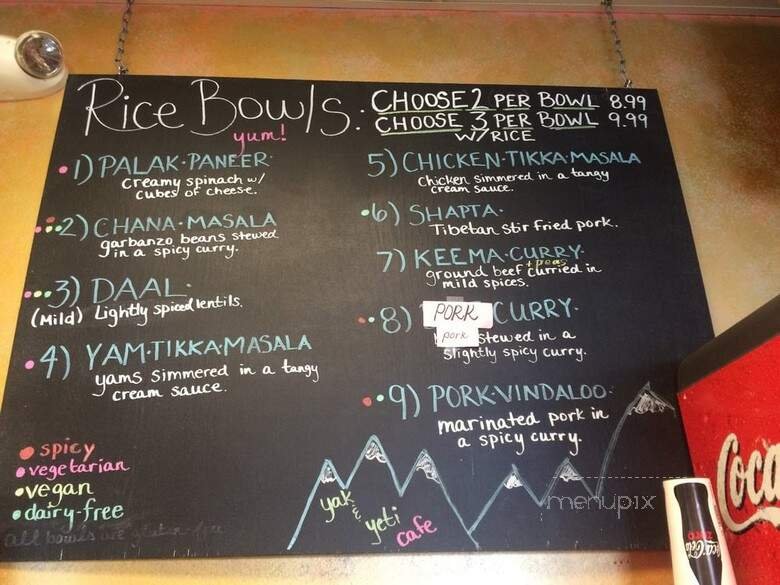 Rice Bowls:
yum!
CHOOSE 2 PER BOWL 8.99
CHOOSE 3 PER BOWL 9.99
W/RICE
1) PALAK·PANEER·
Creamy spinach w/
cubes of cheese.
2) CHANA·MASALA
garbanzo beans stewed
in a spicy curry.
3) DAAL·
(Mild) Lightly spiced lentils.
4) YAM·TIKKA·MASALA
yams simmered in a tangy
cream sauce.
5) CHICKEN·TIKKA·MASALA
Chicken simmered in a tangy
cream sauce.
6) SHAPTA·
Tibetan stir fried pork.
7) KEEMA·CURRY·
+ peas
ground beef curried in
mild spices.
8) PORK CURRY·
pork stewed in a
slightly spicy curry.
9) PORK·VINDALOO·
marinated pork in
a spicy curry.
spicy
vegetarian
vegan
dairy-free
all bowls are gluten-free
yak
&
yeti
cafe
menupix
Coca
Coca-Cola
zero